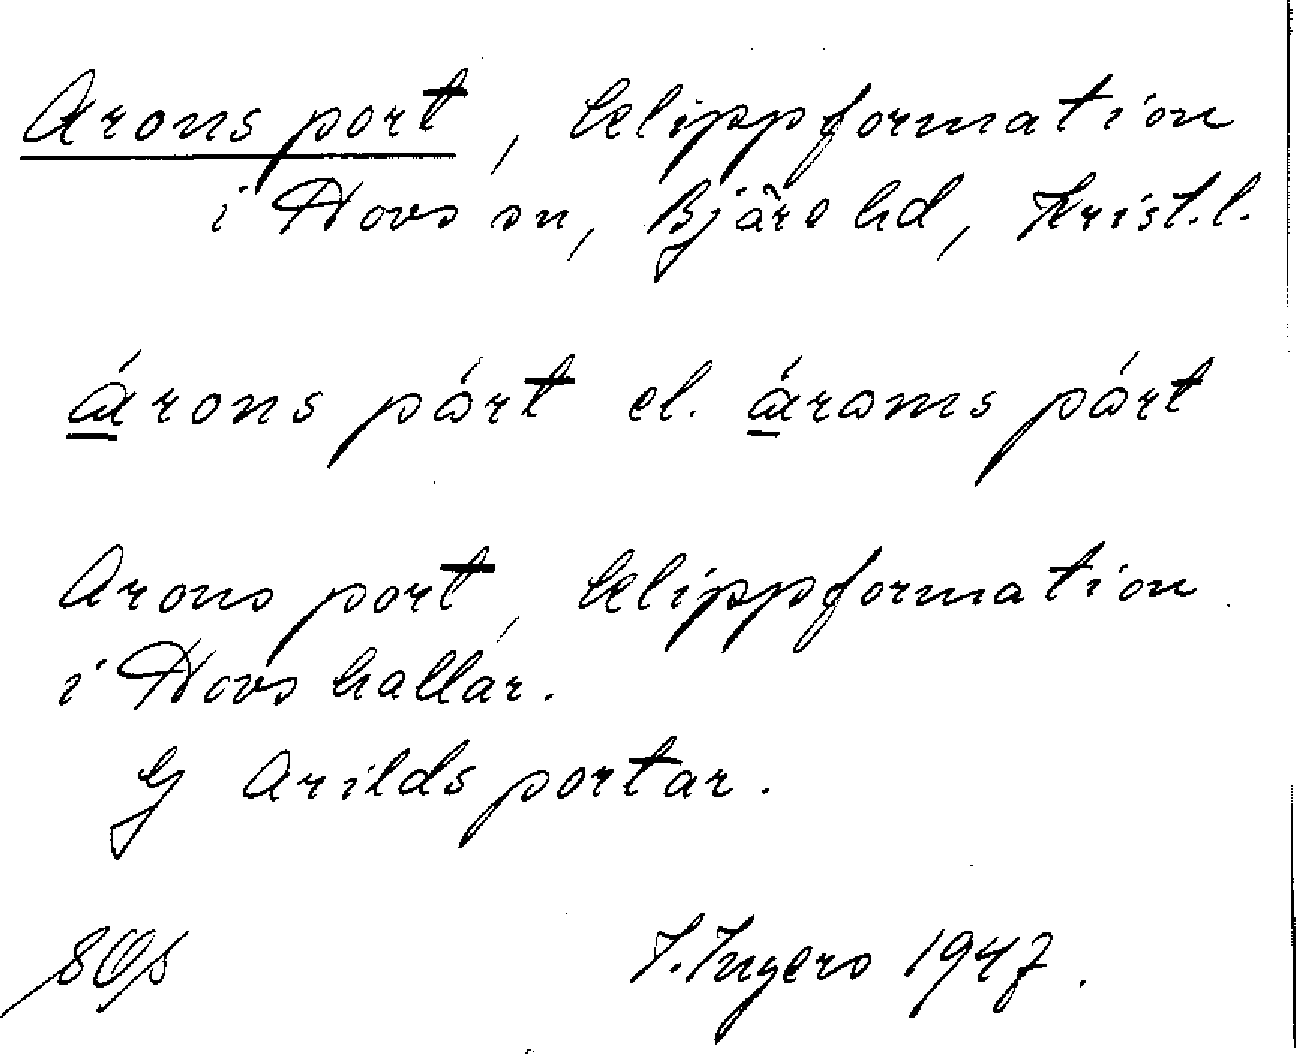 Arons port, klippformation
i Hovs sn, Bjäre hd, Krist.l.
árons pårt el. árams pårt
Arons port, klippformation
i Hovs hallar.
Ej Arilds portar.
I. Ingers 1947.